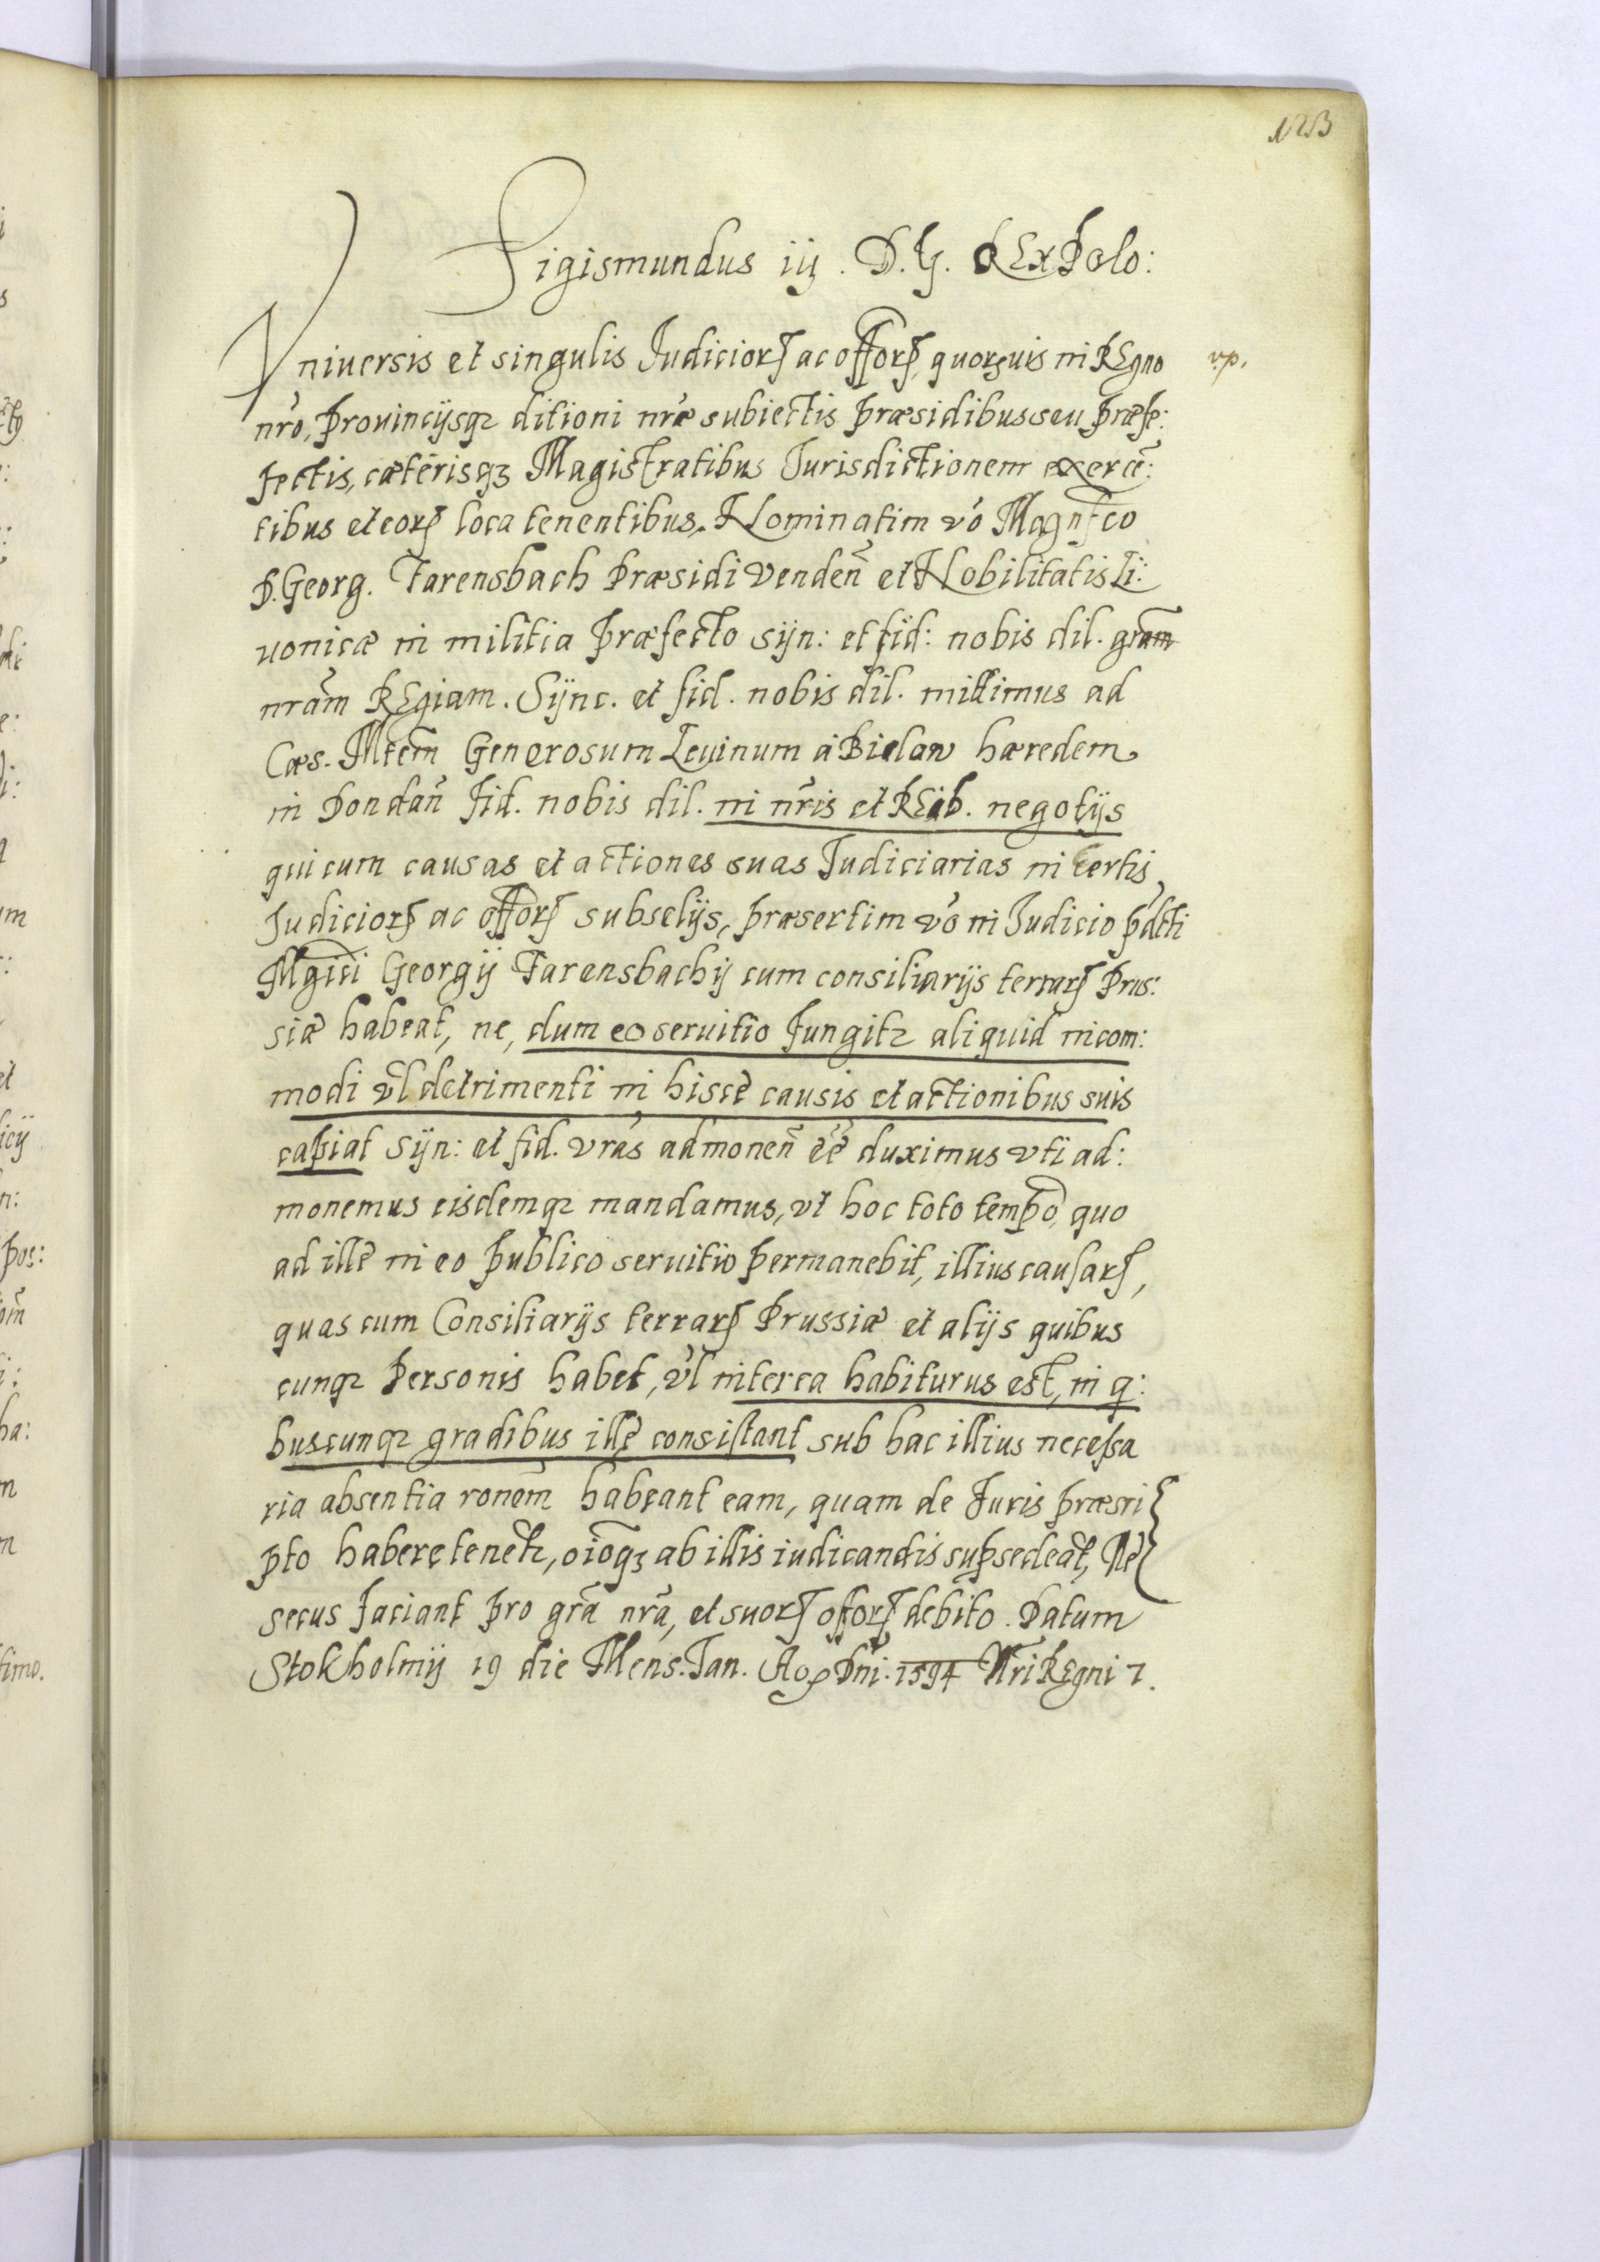 123
Sigismundus iij. D. G. REx Polo:
Vniuersis et singulis Judiciorꝝ ac offorꝝ, quorumuis in REgno v.p.
nr̃o, Prouincijsqꝫ ditioni nr̃æ subiectis Præsidibus seu Præfe:
fectis, cæterisqꝫ Magistratibus Jurisdictionem exercẽ:
tibus et eorꝝ loca tenentibus, Nominatim vo Magnfco
D. Georg. Farensbach Præsidi Vendeñ et Nobilitatis Li:
uonicæ in militia Præfecto syn: et fid: nobis dil. gram
nrãm REgiam. Synс. et fid. nobis dil. mittimus ad
Cæs. Mtem Generosum Leuinum à Bielaw hæredem
in Pondañ fid. nobis dil. in nr̃is et REib. negotijs
qui cum causas et actiones suas Judiciarias in certis
Judiciorꝝ ac offorꝝ subselijs, præsertim vo in Judicio pdcti
Mgici Georgij Farensbachij cum consiliarijs terrarꝝ Prus:
siæ habeat, ne, dum eo seruitio fungitꝛ aliquid incom:
modi vl detrimenti in hisce causis et actionibus suis
capiat syn: et fid. vras admoneñ ẽẽ duximus vti ad:
monemus eisdemqꝫ mandamus, vt hoc toto tempo, quo
ad ille in eo publico seruitio permanebit, illius causarꝝ,
quas cum Consiliarijs terrarꝝ Prussiæ et alijs quibus
cunqꝫ Personis habet, vl interea habiturus est, in q:
buscunqꝫ gradibus illæ consistant sub hac illius necessa
ria absentia ronem habeant eam, quam de Juris præscri
pto habere tenetꝛ, oioqꝫ ab illis iudicandis supsedeat, Ne
secus faciant pro grã nr̃a, et suorꝝ offorꝝ debito. Datum
Stokholmij 19 die Mens. Jan. Ao Dni. 1594 Nri REgni 7.